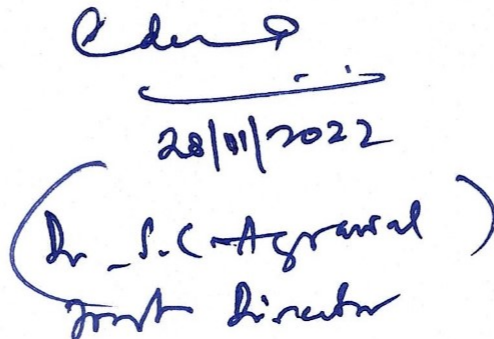 28/11/2022
(Dr. S.C. Agrawal)
Joint Director